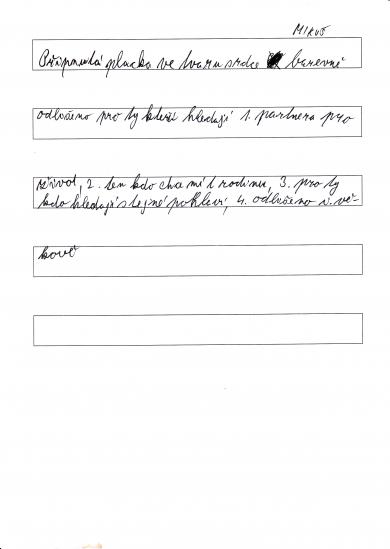 MIRVO
Připomíná placka ve tvaru srdce barevně
odlišeno pro ty kteří hledají 1. partnera pro
život, 2. ten kdo chce mít rodinu, 3. pro ty
kdo hledají stejné pohlaví, 4. odlišeno i vě-
kově